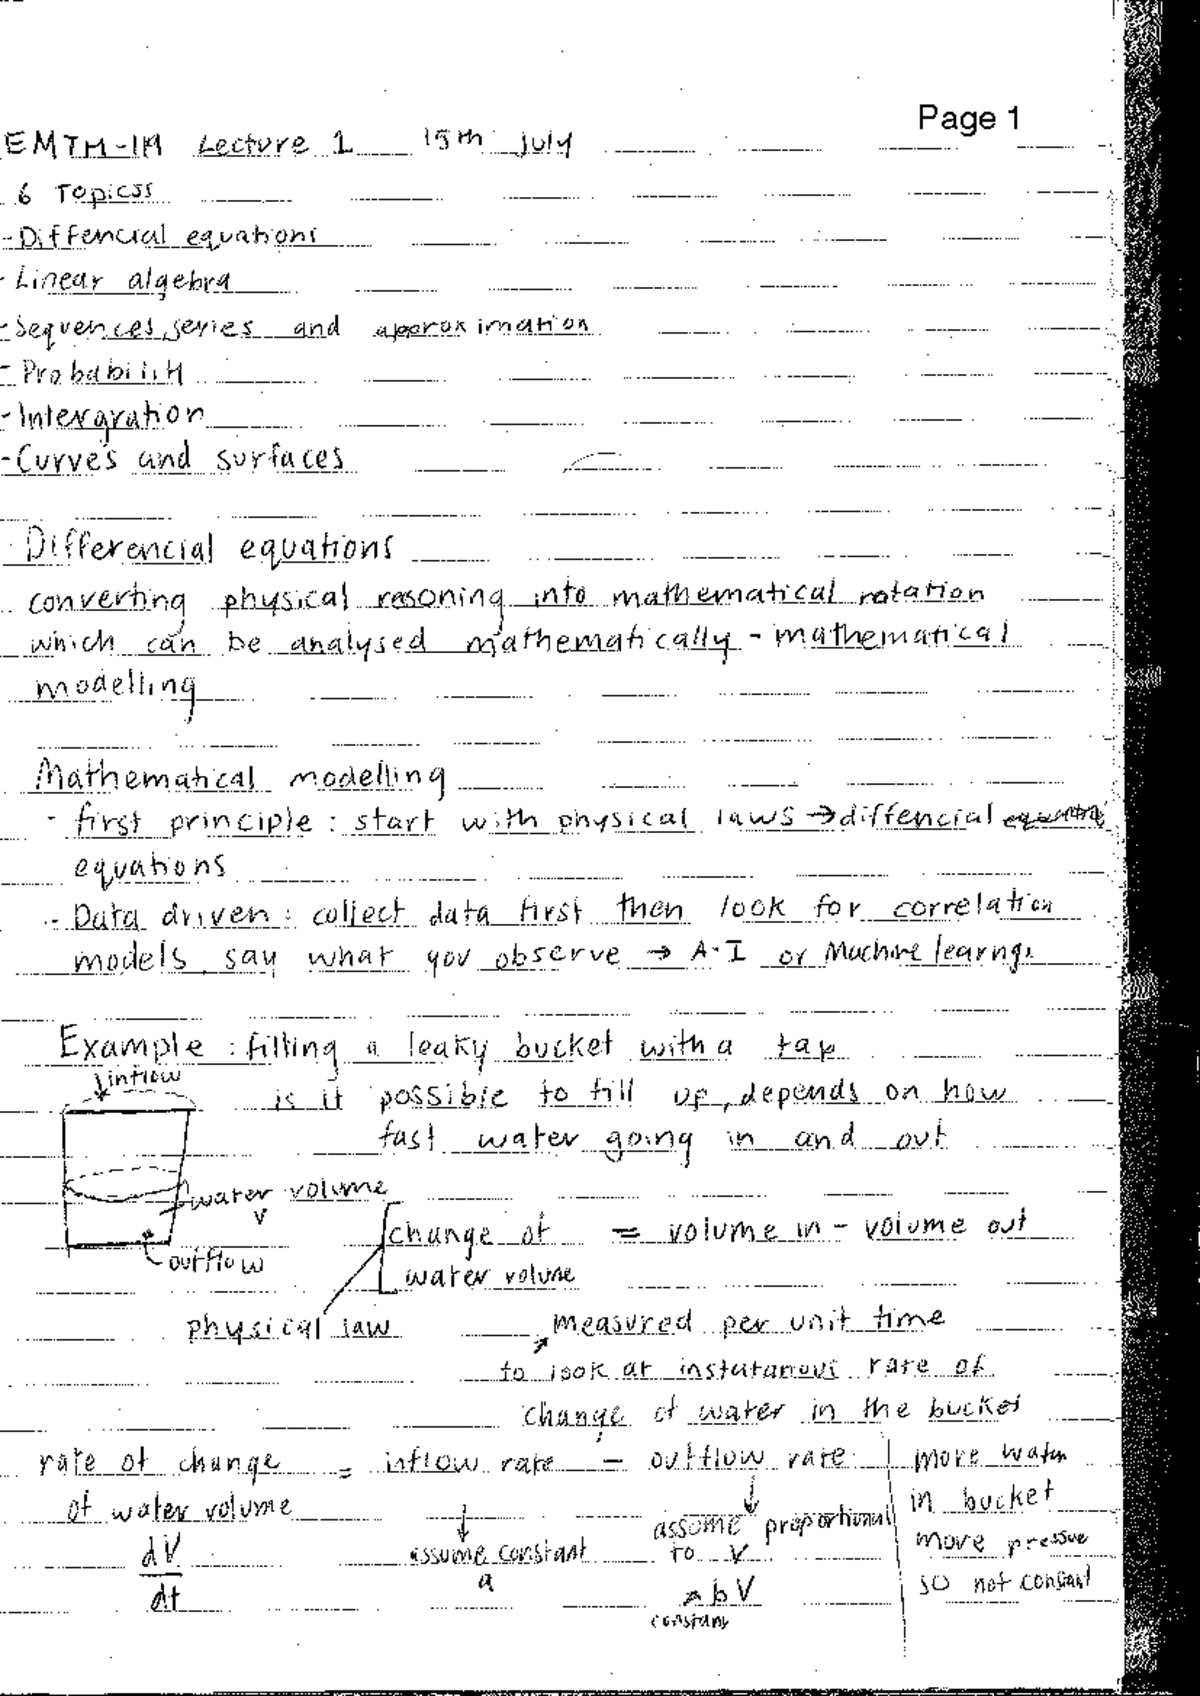 Page 1
EMTM-1M Lecture 1 15th July
6 Topicss
-Diffencial equations
-Linear algebra
-Sequences, series and approximation
-Probability
-Intergration
-Curves and surfaces
Differencial equations
converting physical resoning into mathematical notation
which can be analysed mathematically - mathematical
modelling
Mathematical modelling
- first principle: start with physical laws → diffencial
equations
- Data driven: collect data first then look for correlation
models say what you observe → A.I or Machine learng.
Example: filling a leaky bucket with a tap
inflow
is it possible to fill up, depends on how
fast water going in and out
water volume
V
change of = volume in - volume out
water volume
outflow
physical law
measured per unit time
to look at instatanous rate of
change of water in the bucket
rate of change = inflow rate - outflow rate
of water volume
dV
dt
assume constant
a
assume proportional
to V
bV
constant
more water
in bucket
more pressue
so not constant